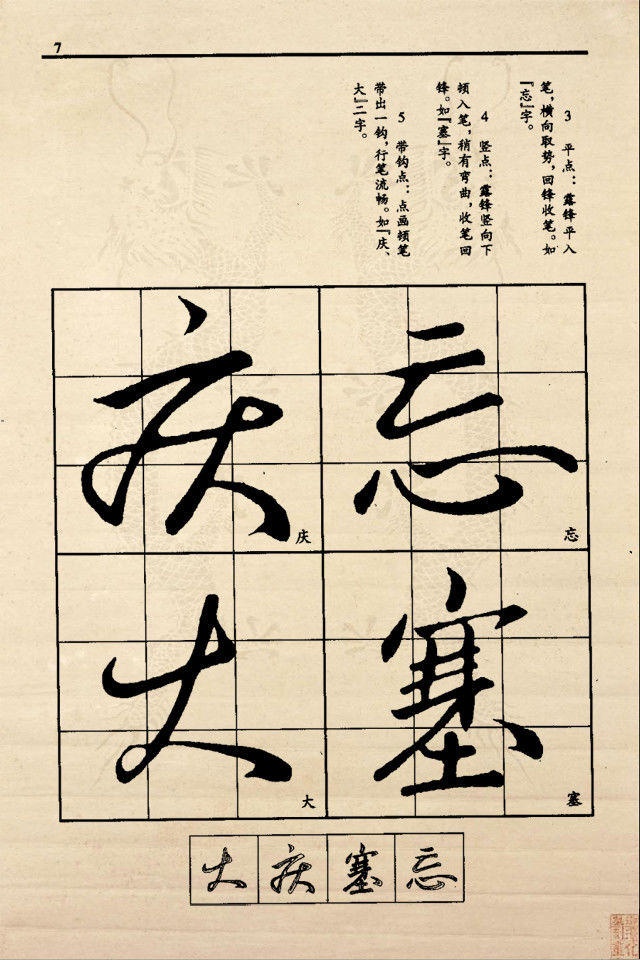 7
3 平点：露锋平入
笔，横向取势，回锋收笔。如
『忘』字。
4 竖点：露锋竖向下
顿入笔，稍有弯曲，收笔回
锋。如『塞』字。
5 带钩点：点画顿笔
带出一钩，行笔流畅。如『庆、
大』二字。
忘
忘
塞
塞
庆
庆
大
大
大庆塞忘